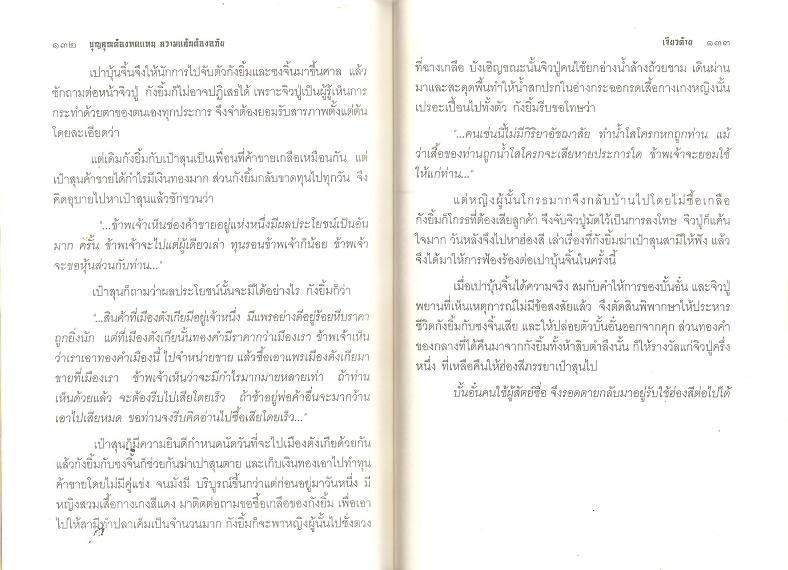 ๑๓๒ บุญคุณต้องทดแทน ความแค้นต้องอภัย
เปาบุ้นจิ้นจึงให้นักการไปจับตัวกังยิ้มและซงจิ้นมาขึ้นศาล แล้ว
ซักถามต่อหน้าจิวปู่ กังยิ้มก็ไม่อาจปฏิเสธได้ เพราะจิวปู่เป็นผู้รู้เห็นการ
กระทำด้วยตาของตนเองทุกประการ จึงจำต้องยอมรับสารภาพตั้งแต่ต้น
โดยละเอียดว่า
แต่เดิมกังยิ้มกับเป๋าสุนเป็นเพื่อนที่ค้าขายเกลือเหมือนกัน แต่
เป๋าสุนค้าขายได้กำไรมีเงินทองมาก ส่วนกังยิ้มกลับขาดทุนไปทุกวัน จึง
คิดอุบายไปหาเป๋าสุนแล้วชักชวนว่า
"...ข้าพเจ้าเห็นช่องค้าขายอยู่แห่งหนึ่งมีผลประโยชน์เป็นอัน
มาก ครั้น ข้าพเจ้าจะไปแต่ผู้เดียวเล่า ทุนรอนข้าพเจ้าก็น้อย ข้าพเจ้า
จะขอหุ้นส่วนกับท่าน..."
เป๋าสุนก็ถามว่าผลประโยชน์นั้นจะมีได้อย่างไร กังยิ้มก็ว่า
"...สินค้าที่เมืองตังเกียมีอยู่เจ้าหนึ่ง มีแพรอย่างดีอยู่ร้อยหีบราคา
ถูกยิ่งนัก แต่ที่เมืองตังเกียนั้นทองคำมีราคากว่าเมืองเรา ข้าพเจ้าเห็น
ว่าเราเอาทองคำเมืองนี้ ไปจำหน่ายขาย แล้วซื้อเอาแพรเมืองตังเกียมา
ขายที่เมืองเรา ข้าพเจ้าเห็นว่าจะมีกำไรมากมายหลายเท่า ถ้าท่าน
เห็นด้วยแล้ว จะต้องรีบไปเสียโดยเร็ว ถ้าช้าอยู่พ่อค้าอื่นจะมากว้าน
เอาไปเสียหมด ขอท่านจงรีบคิดอ่านไปซื้อเสียโดยเร็ว..."
เป๋าสุนก็มีความยินดีกำหนดนัดวันที่จะไปเมืองตังเกียด้วยกัน
แล้วกังยิ้มกับซงจิ้นก็ช่วยกันฆ่าเปาสุนตาย และเก็บเงินทองเอาไปทำทุน
ค้าขายโดยไม่มีคู่แข่ง จนมั่งมี บริบูรณ์ขึ้นกว่าแต่ก่อนอยู่มาวันหนึ่ง มี
หญิงสวมเสื้อกางเกงสีแดง มาติดต่อถามขอซื้อเกลือของกังยิ้ม เพื่อเอา
ไปให้สามีทำปลาเค็มเป็นจำนวนมาก กังยิ้มก็จะพาหญิงผู้นั้นไปชั่งตวง
เจียวต้าย ๑๓๓
ที่ฉางเกลือ บังเอิญขณะนั้นจิวปู่คนใช้ยกอ่างน้ำล้างถ้วยชาม เดินผ่าน
มาและสะดุดพื้นทำให้น้ำสกปรกในอ่างกระฉอกรดเสื้อกางเกงหญิงนั้น
เปรอะเปื้อนไปทั้งตัว กังยิ้มรีบขอโทษว่า
"...คนเช่นนี้ไม่มีกิริยาอัชฌาสัย ทำน้ำโสโครกหกถูกท่าน แม้
ว่าเสื้อของท่านถูกน้ำโสโครกจะเสียหายประการใด ข้าพเจ้าจะยอมใช้
ให้แก่ท่าน..."
แต่หญิงผู้นั้นโกรธมากจึงกลับบ้านไปโดยไม่ซื้อเกลือ
กังยิ้มก็โกรธที่ต้องเสียลูกค้า จึงจับจิวปู่มัดไว้เป็นการลงโทษ จิวปู่ก็แค้น
ใจมาก วันหลังจึงไปหาฮ่องสี เล่าเรื่องที่กังยิ้มฆ่าเป๋าสุนสามีให้ฟัง แล้ว
จึงได้มาให้การฟ้องร้องต่อเปาบุ้นจิ้นในครั้งนี้
เมื่อเปาบุ้นจิ้นได้ความจริง สมกับคำให้การของบั้นอั๋น และจิวปู่
พยานที่เห็นเหตุการณ์ไม่มีข้อสงสัยแล้ว จึงตัดสินพิพากษาให้ประหาร
ชีวิตกังยิ้มกับซงจิ้นเสีย และให้ปล่อยตัวบั้นอั๋นออกจากคุก ส่วนทองคำ
ของกลางที่ได้คืนมาจากกังยิ้มทั้งห้าสิบตำลึงนั้น ก็ให้รางวัลแก่จิวปู่ครึ่ง
หนึ่ง ที่เหลือคืนให้ฮ่องสีภรรยาเป๋าสุนไป
บั้นอั๋นคนใช้ผู้สัตย์ซื่อ จึงรอดตายกลับมาอยู่รับใช้ฮ่องสีต่อไปได้